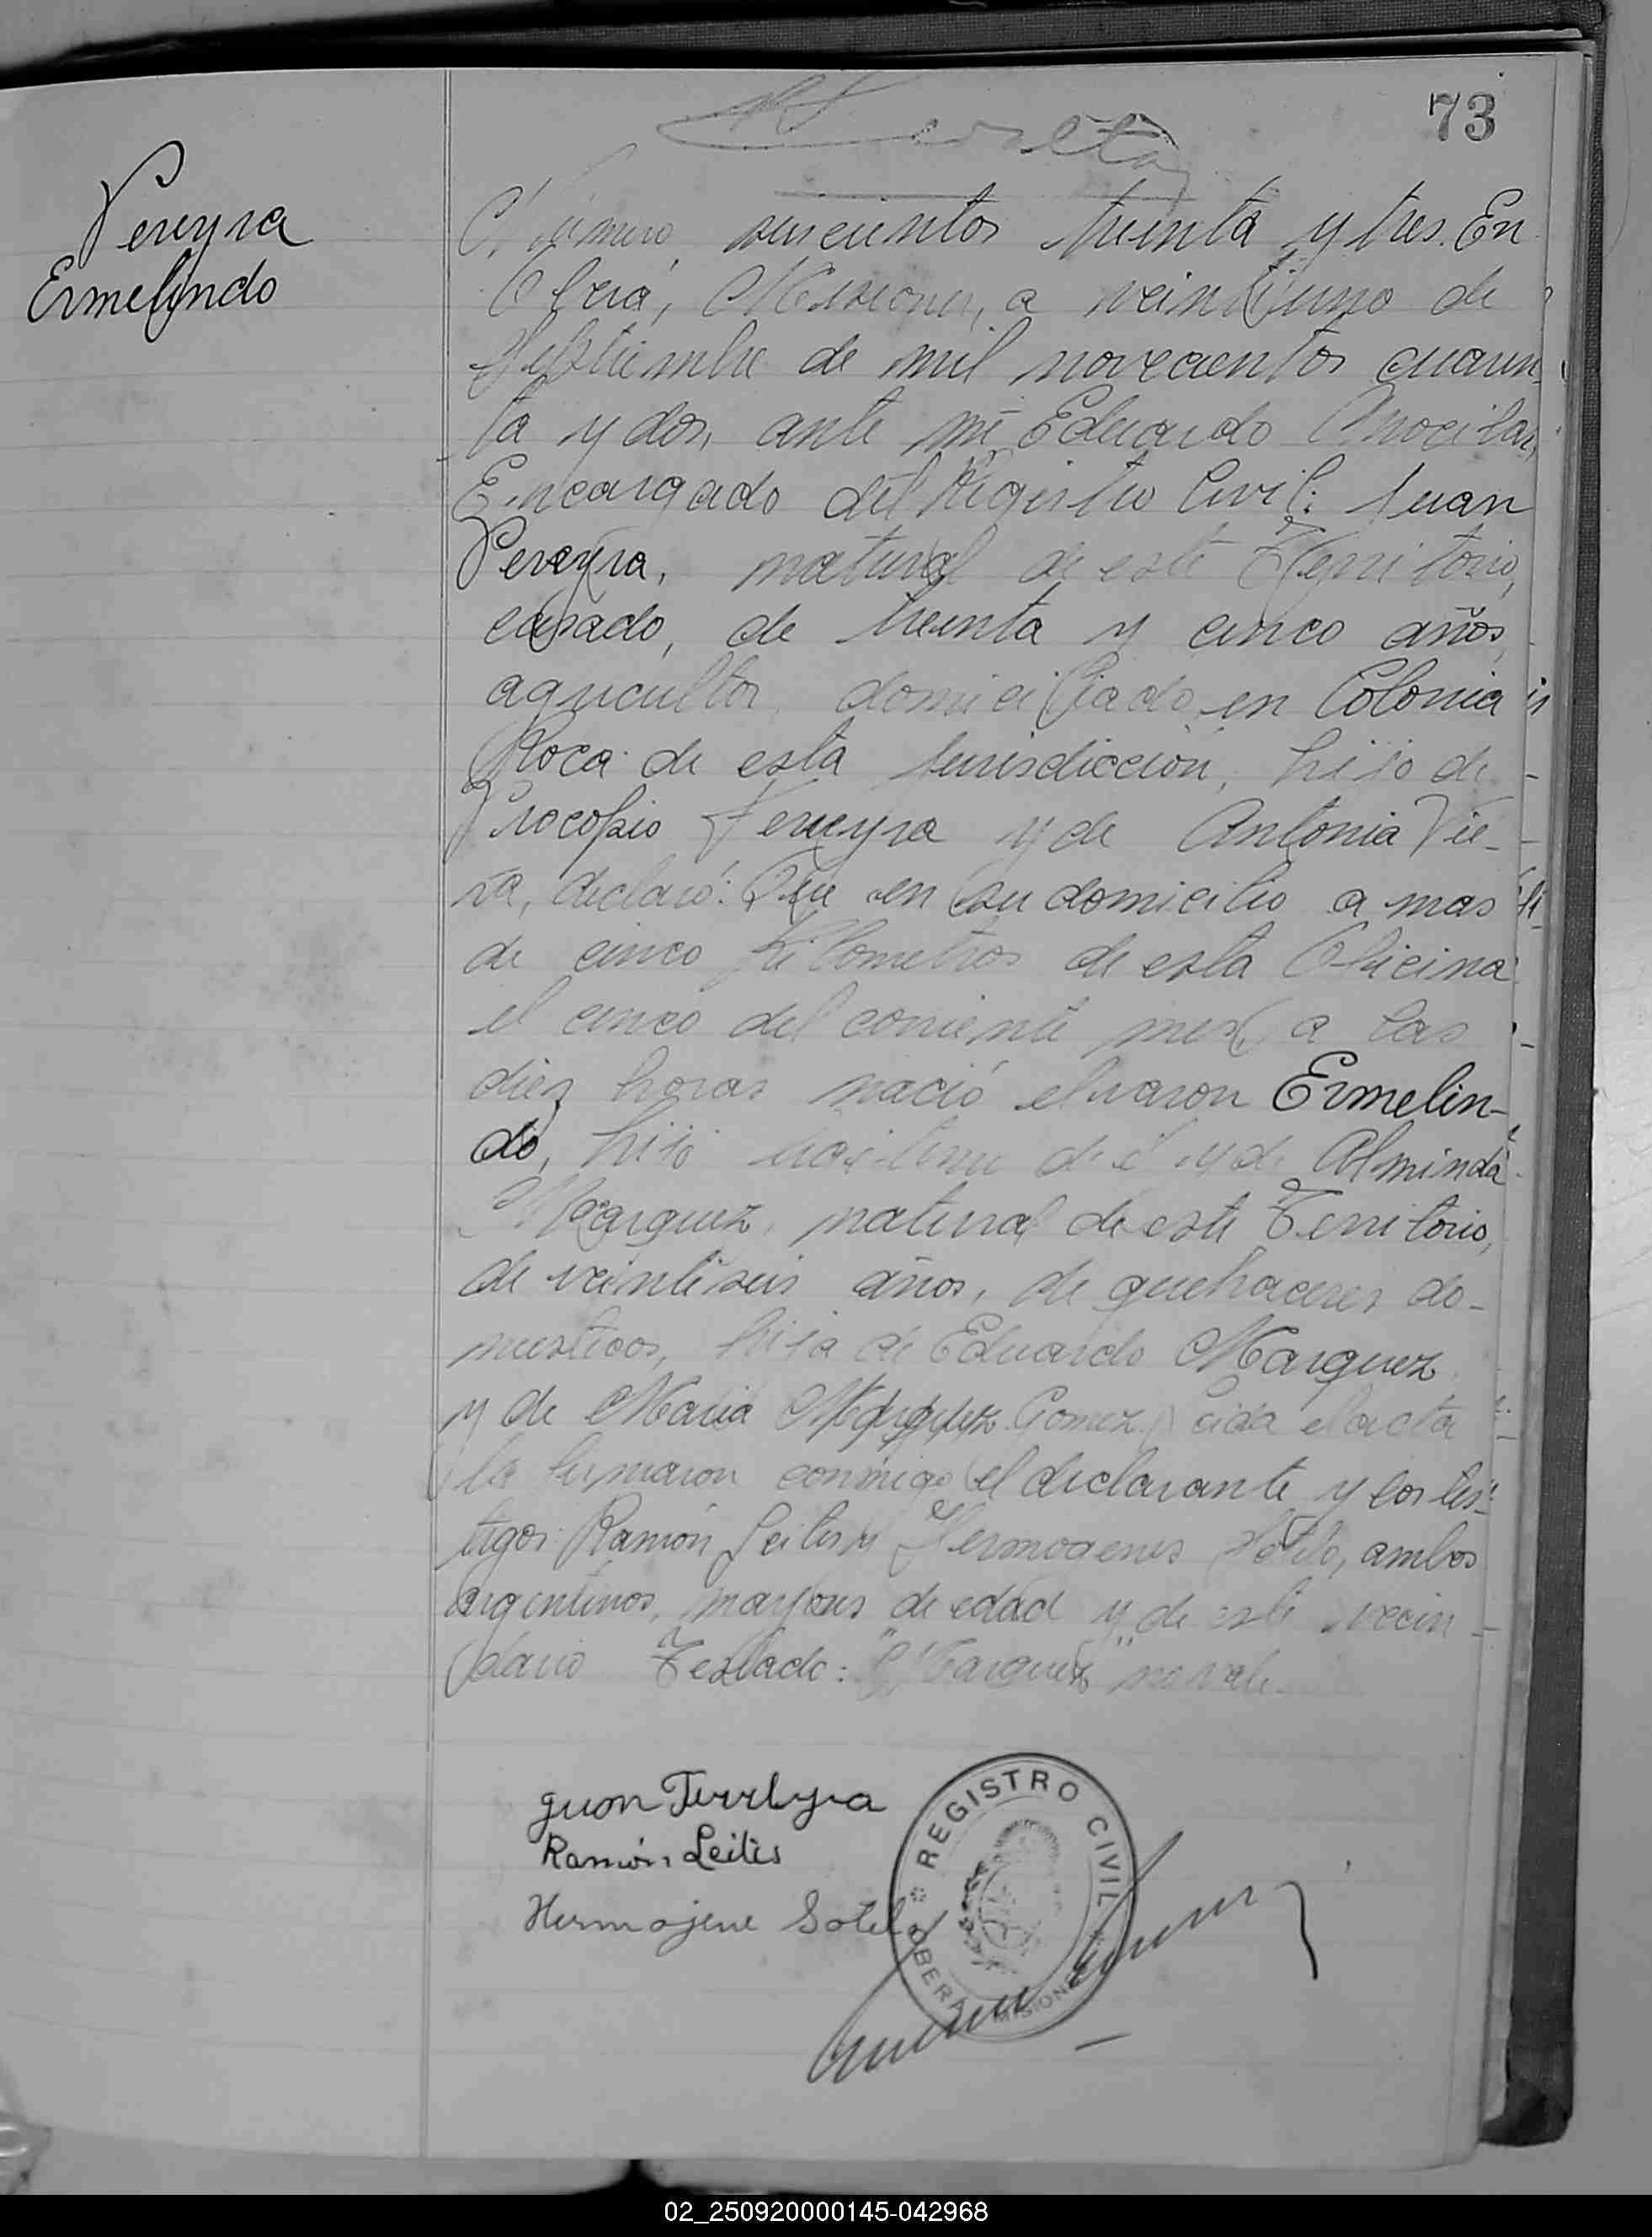 73
Pereyra
Ermelindo
Número seiscientos treinta y tres. En
Oberá, Misiones, a veintiuno de
Septiembre de mil novecientos cuaren-
ta y dos, ante mí Eduardo
Encargado del Registro Civil: Juan
Pereyra, natural de este Territorio,
casado, de treinta y cinco años,
agricultor, domiciliado en Colonia
Roca de esta Jurisdicción, hijo de
Procopio Pereyra y de Antonia Vie-
ra, declaró: Que en su domicilio a mas
de cinco kilometros de esta Oficina
el cinco del corriente mes, a las
diez horas nació el varon Ermelin-
do, hijo legitimo de él y de Alminda
Marquez, natural de este Territorio,
de veintiseis años, de quehaceres do-
mesticos, hija de Eduardo Marquez
y de Maria Marquez Gomez. Leida el acta
la firmaron conmigo el declarante y los tes-
tigos: Ramón Leites y Hermogenes Sotelo, ambos
argentinos, mayores de edad y de este vecin-
dario Testado: "Marquez" no vale.
Ramón Leites
Hermojene Sotelo
REGISTRO CIVIL
OBERÁ MISIONES
02_250920000145-042968